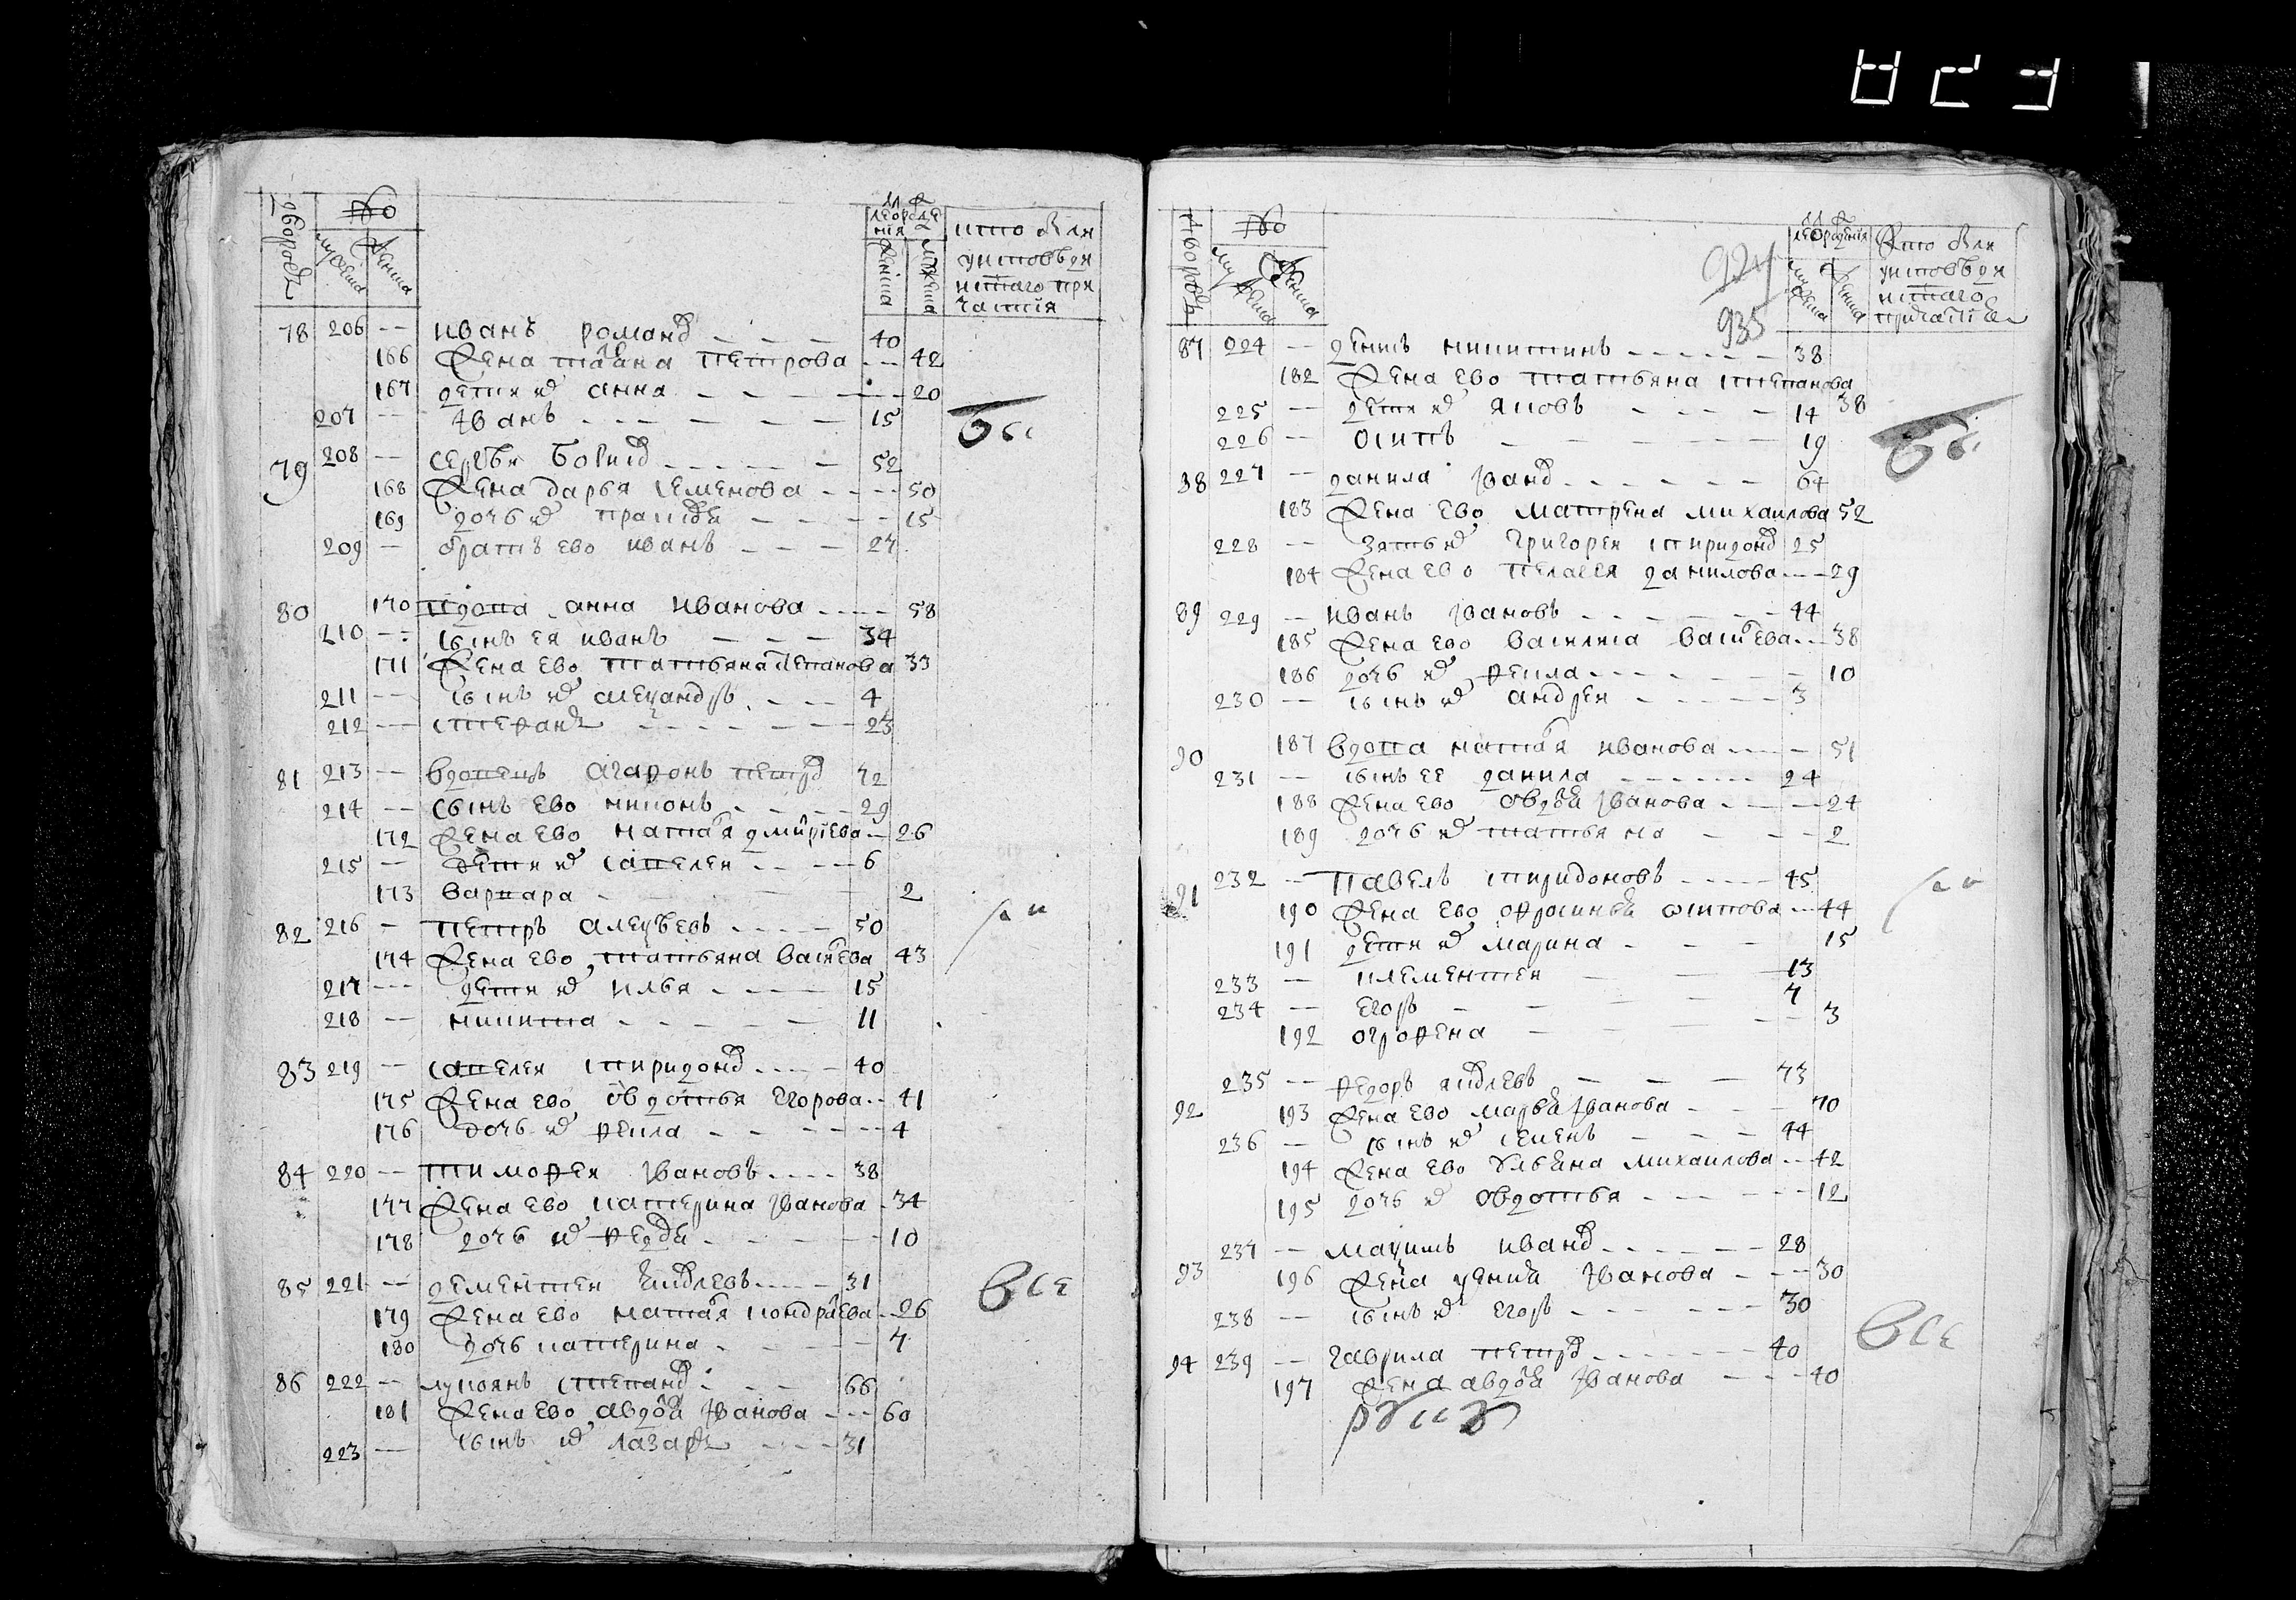 78 206 -- иванъ романо 40
166 жена татьяна петрова -- 42
167 дети их анна 20
207 -- иванъ 15
79 208 -- сергѣи борисо 52
168 жена дарья семенова 50
169 дочь их праскоя 15
209 -- братъ ево иванъ 27
80 170 вдова анна иванова 58
210 -- сынъ ея иванъ 34
171 жена ево татьяна степанова 33
211 -- сынъ их алеѯандръ 4
212 -- стефанъ 23
81 213 -- вдовецъ агафонъ петро 72
214 -- сынъ ево никонъ 29
172 жена ево наталя дмитриева 26
215 -- дети их савелеи 6
173 варвара 2
82 216 -- петръ алеѯѣевъ 50
174 жена ево татьяна васиева 43
217 -- дети их илья 15
218 -- никита 11
83 219 -- савелеи спиридоно 40
175 жена ево овдотья егорова 41
176 дочь их фекла 4
84 220 -- тимофеи ивановъ 38
177 жена ево катерина иванова 34
178 дочь их федоя 10
85 221 -- дементеи яковлевъ 31
179 жена ево наталя кондратева 26
180 дочь катерина 7
86 222 -- лукоянъ степано 66
181 жена ево авдотя иванова 60
223 -- сынъ их лазарь 31
всѣ
все
924
935
87 224 -- денисъ никитинъ 38
182 жена ево татьяна степанова 38
225 -- дети их яковъ 14
226 -- осипъ 19
88 227 -- данила ивано 64
183 жена ево матрена михаилова 52
228 -- зять их григореи спиридоно 25
184 жена ево пелагея данилова 29
89 229 -- иванъ ивановъ 44
185 жена ево василиса васиева 38
186 дочь их фекла 10
230 -- сынъ их андреи 3
90 187 вдова наталя иванова 51
231 -- сынъ ее данила 24
188 жена ево овдотя иванова 24
189 дочь их татьяна 2
91 232 -- павелъ спиридоновъ 45
190 жена ево офросинья осипова 44
191 дети их марина 15
233 -- клементеи 13
234 -- егоръ 7
192 огрофена 3
92 235 -- федоръ яковлевъ 73
193 жена ево марѳа иванова 70
236 -- сынъ их семенъ 44
194 жена ево ульяна михаилова 42
195 дочь их овдотья 12
93 237 -- маѯимъ ивано 28
196 жена ѯения иванова 30
238 -- сынъ их егоръ 30
94 239 -- гаврила петро 40
197 жена авдотя иванова 40
все